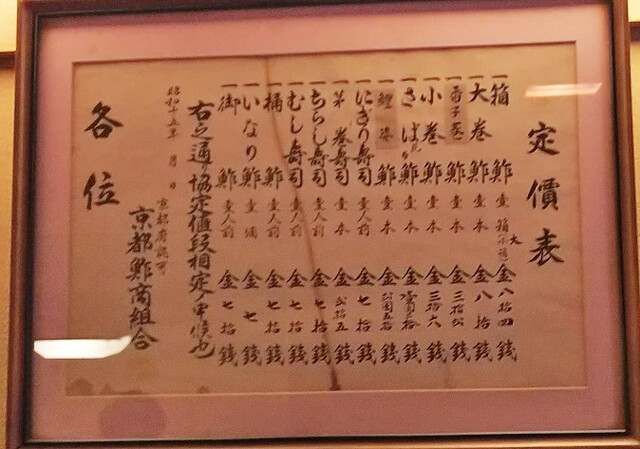 定價表
一箱鮓 壹本 金八拾四錢
一大巻鮓 壹本 金八拾錢
一玉子巻鮓 壹本 金三拾六錢
一小巻鮓 壹本 金三拾六錢
一さば鮓 壹本
一鯉姿鮓 壹本
一にぎり寿司 壹人前 金七拾錢
巻寿司 壹本 金弐拾五錢
一ちらし寿司 壹人前 金七拾錢
一むし寿司 壹人前 金七拾錢
一桶鮓 壹人前 金七拾錢
一いなり鮓 壹個 金七錢
一御鮓 壹人前 金七拾錢
右之通リ協定値段相定メ申候也
昭和十五年 月 日 京都府認可
京都鮓商組合
各位